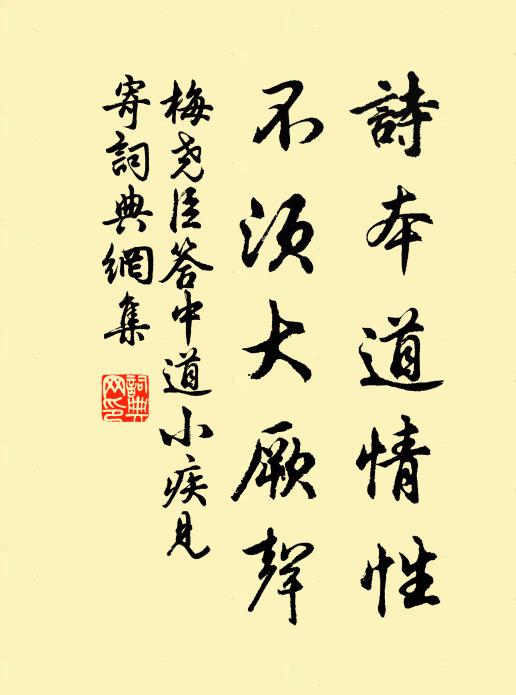 詩本道情性
不須大厥聲
梅堯臣答中道小疾見
寄詞典網集
詞典
网印